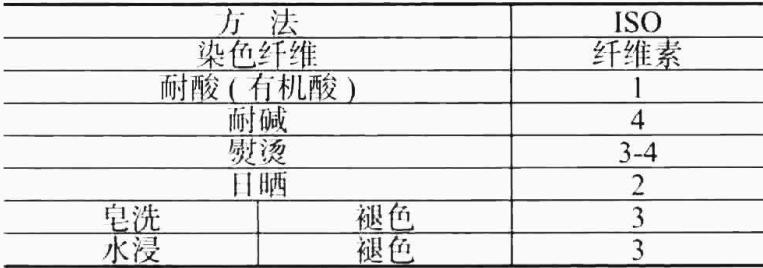 方 法 ISO
染色纤维 纤维素
耐酸(有机酸) 1
耐碱 4
熨烫 3-4
日晒 2
皂洗 褪色 3
水浸 褪色 3